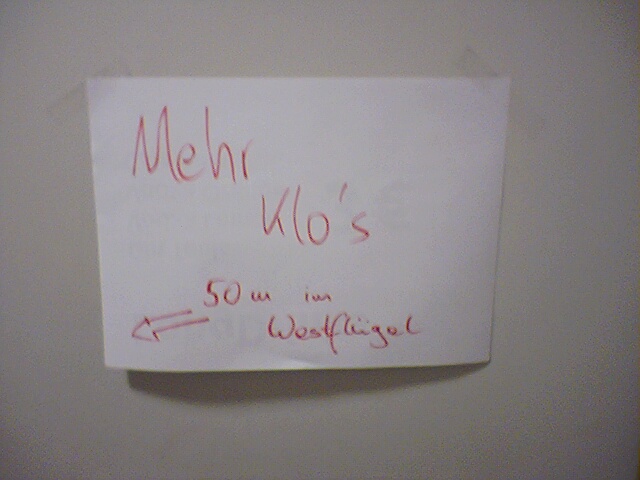 Mehr
Klo's
50 m im
Westflügel